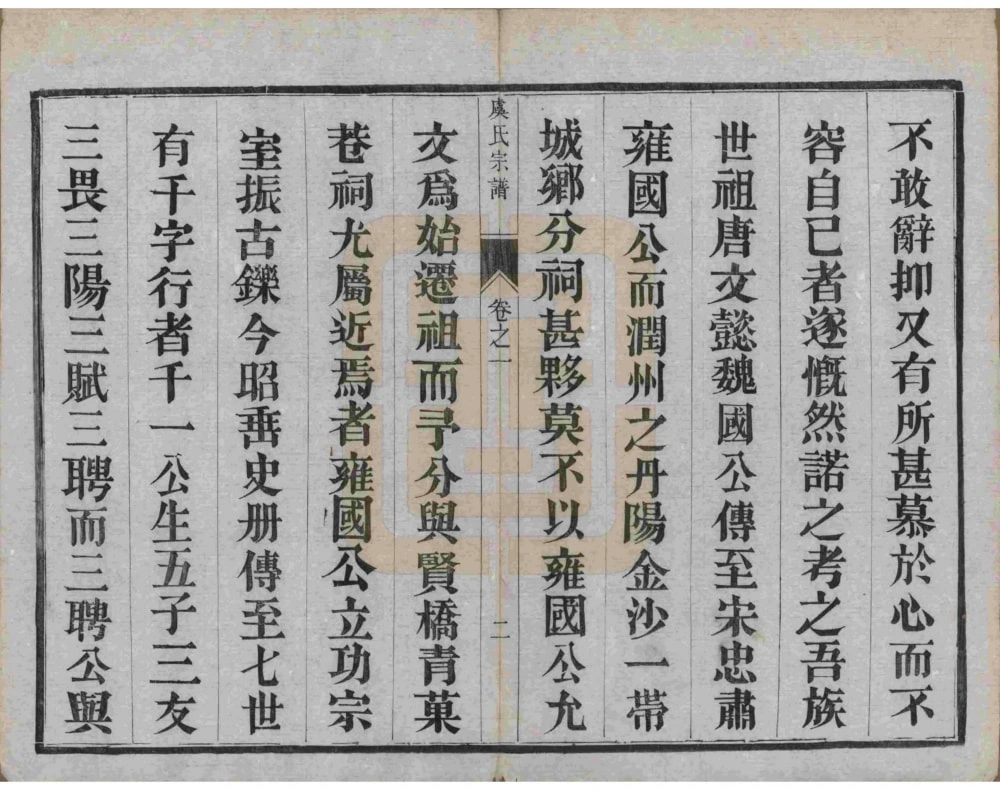 不敢辭抑又有所甚慕於心而不
容自已者遂慨然諾之考之吾族
世祖唐文懿魏國公傳至宋忠肅
雍國公而潤州之丹陽金沙一帶
城鄉分祠甚夥莫不以雍國公允
虞氏宗譜 卷之一 二
文爲始遷祖而予分與賢橋青菓
巷祠尤屬近焉者雍國公立功宗
室振古鑠今昭垂史册傳至七世
有千字行者千一公生五子三友
三畏三陽三賦三聘而三聘公與